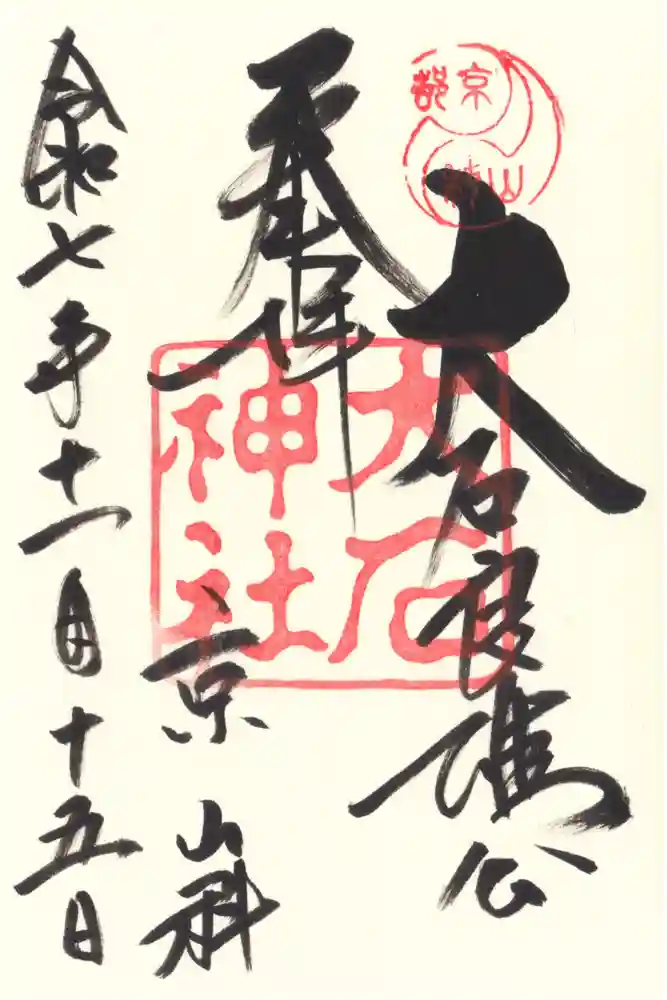 京都
山科
大石良雄公
奉拝
大石
神社
京 山科
令和七年十一月十五日